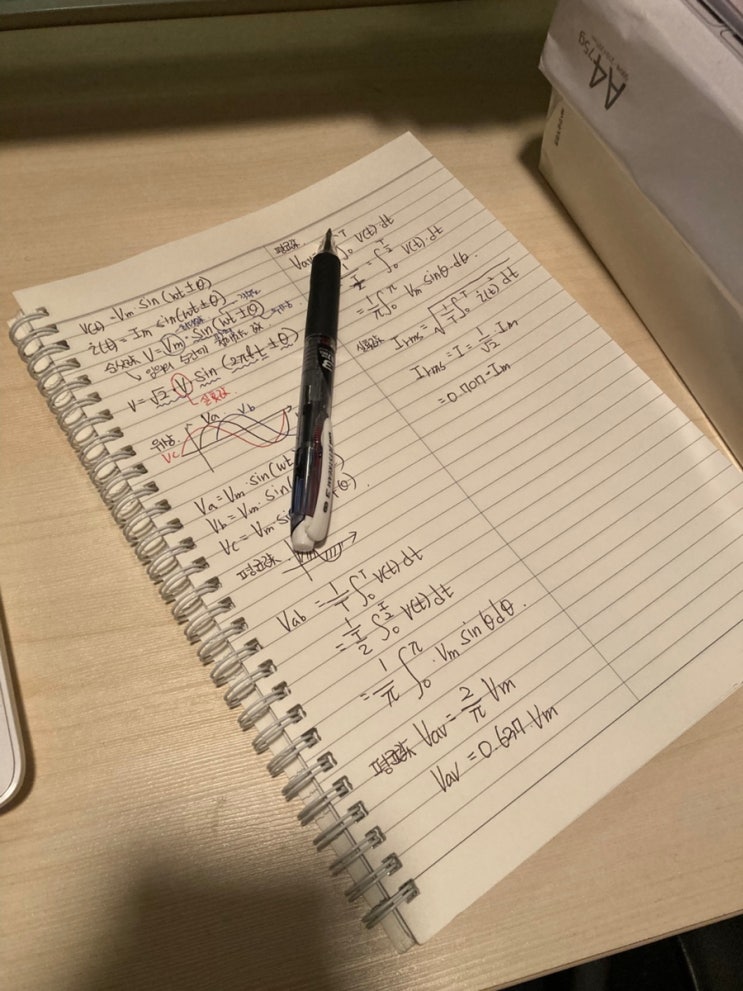 V(t) = Vm sin (wt ± θ)
i(t) = Im sin(wt ± θ)
순시값 V = Vm · sin (wt ± θ)
V = √2 · V sin (2πft ± θ)
실효값
위상.
Va Vb
Vc
Va = Vm · sin(wt
Vb = Vm · sin(
Vc = Vm · sin θ)
평균값
Vab = 1/T ∫₀ᵀ V(t) dt
= 1/(T/2) ∫₀^(T/2) V(t) dt
= 1/π ∫₀^π · Vm sin θ dθ.
평균값 Vav = 2/π Vm
Vav = 0.637 · Vm
평균값.
Vav ∫₀ᵀ V(t) · dt
= ∫₀^(T/2) V(t) · dt
= 1/π ∫₀^π Vm sinθ · dθ.
실효값 Irms = √(1/T ∫₀ᵀ i(t)² dt
Irms = I = 1/√2 · Im
= 0.707 · Im
A4 75g